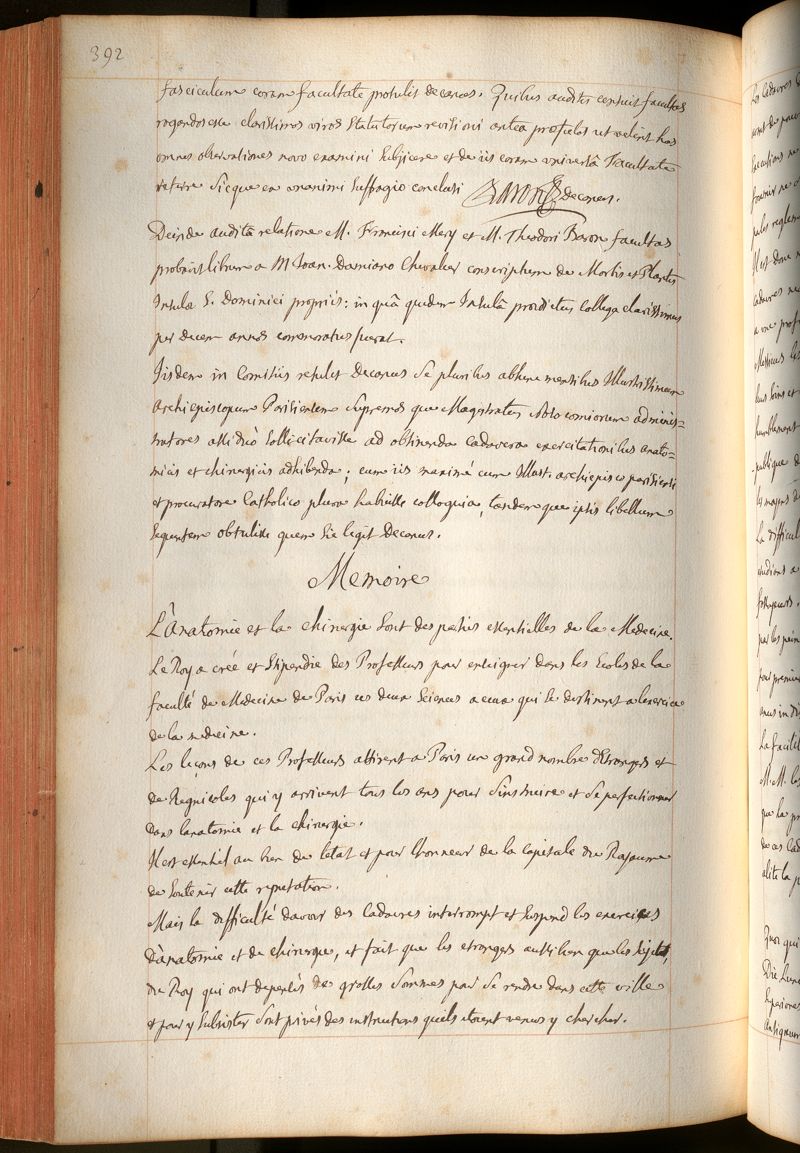 392
fasciculum coram facultate protulit decanus. Quibus auditis censuit facultas
rogandos esse clarissimos viros statutorum revisioni antea propositos ut velint has
omnes observationes novo examini subjicere et de iis coram universâ Facultate
referre sicque en unanimi suffragio conclusi BARON Decanus.
Deinde auditâ relatione M. Francisci Mery et M. Theodori Baron facultas
probavit librum a M Joan. Damiano Chevalier conscriptum de Morbis et Plantis
Insulæ S. Dominici propriis: in quâ quidem Insulâ prædictus collega clarissimus
per decem annos commoratus fuerat.
Iisdem in Comitiis retulit Decanus se pluribus abhinc mensibus Illustrissimum
Archiepiscopum Parisiensem supremos que Magistratus Nosocomiorum adminis=
tratores assiduò sollicitavisse ad obtinenda cadavera exercitationibus anato=
micis et chirurgicis adhibenda; cum iis maximè cum Illust. archiepiscopo parisiensi
et procuratore Catholico plura habuisse colloquia, tandem que ipsis libellum
sequentem obtulisse quem sic legit Decanus.
Memoire
L'Anatomie et la chirurgie sont des parties essentielles de la Medecine.
Le Roy a créé et stipendie des Professeurs pour enseigner dans les Ecoles de la
faculté de Medecine de Paris ces deux sciences a ceux qui se destinent a lexercice
de la medecine.
Les leçons de ces Professeurs attirent a Paris un grand nombre d'Etrangers et
de Regnicoles qui y arrivent tous les ans pour s'instruire et se perfectionner
dans lanatomie et la chirurgie.
Il est essentiel au bien de letat et pour lhonneur de la capitale du Royaume
de soutenir cette reputation.
Mais la difficulté davoir des Cadavres interrompt et suspend les exercices
d'anatomie et de chirurgie, et fait que les etrangers aussi bien que les sujets
du Roy qui ont depensés de grosses sommes pour se rendre dans cette ville
et pour y subsister sont privés des instructions quils etoient venus y chercher.